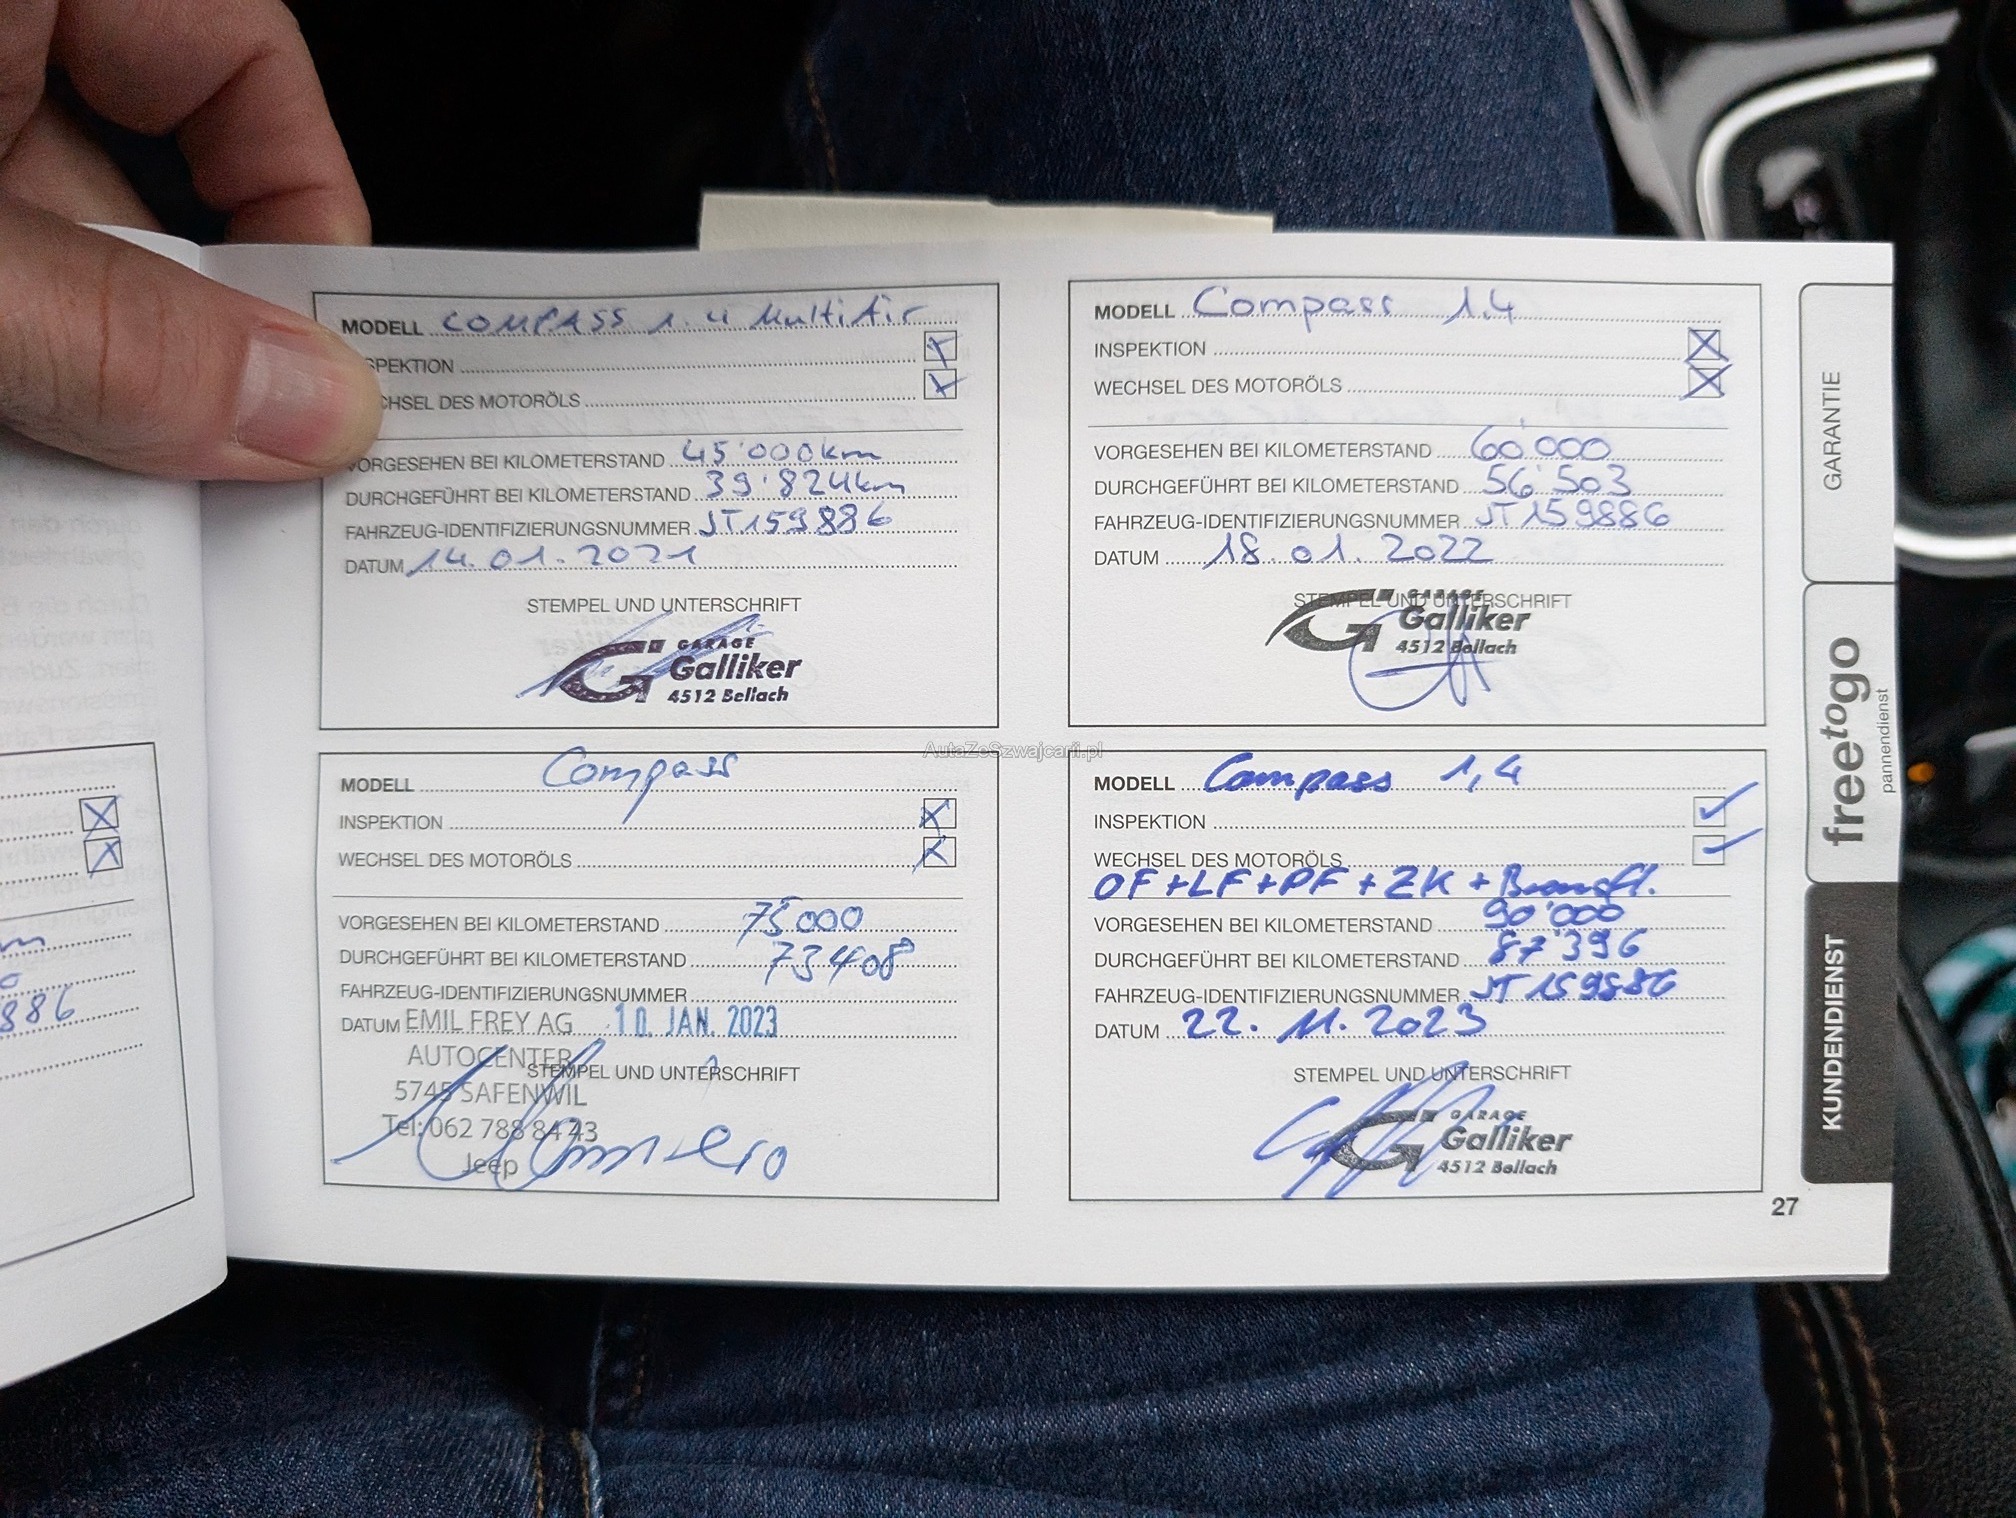 MODELL COMPASS 1.4 MultiAir
SPEKTION
CHSEL DES MOTORÖLS
VORGESEHEN BEI KILOMETERSTAND 45'000km
DURCHGEFÜHRT BEI KILOMETERSTAND 39'824km
FAHRZEUG-IDENTIFIZIERUNGSNUMMER JT159886
DATUM 14.01.2021
STEMPEL UND UNTERSCHRIFT
GARAGE
Galliker
4512 Bellach
MODELL Compass 1.4
INSPEKTION
WECHSEL DES MOTORÖLS
VORGESEHEN BEI KILOMETERSTAND 60'000
DURCHGEFÜHRT BEI KILOMETERSTAND 56'503
FAHRZEUG-IDENTIFIZIERUNGSNUMMER JT159886
DATUM 18.01.2022
STEMPEL UND UNTERSCHRIFT
GARAGE
Galliker
4512 Bellach
AutaZeSzwajcarii.pl
MODELL Compass
INSPEKTION
WECHSEL DES MOTORÖLS
VORGESEHEN BEI KILOMETERSTAND 75000
DURCHGEFÜHRT BEI KILOMETERSTAND 73408
FAHRZEUG-IDENTIFIZIERUNGSNUMMER
DATUM 10. JAN. 2023
EMIL FREY AG
AUTOCENTER
STEMPEL UND UNTERSCHRIFT
5745 SAFENWIL
Tel: 062 788 84 43
Jeep
MODELL Compass 1,4
INSPEKTION
WECHSEL DES MOTORÖLS
OF+LF+PF+ZK+
VORGESEHEN BEI KILOMETERSTAND 90'000
DURCHGEFÜHRT BEI KILOMETERSTAND 87'396
FAHRZEUG-IDENTIFIZIERUNGSNUMMER JT159886
DATUM 22.11.2023
STEMPEL UND UNTERSCHRIFT
GARAGE
Galliker
4512 Bellach
27
GARANTIE
freetogo
pannendienst
KUNDENDIENST
886